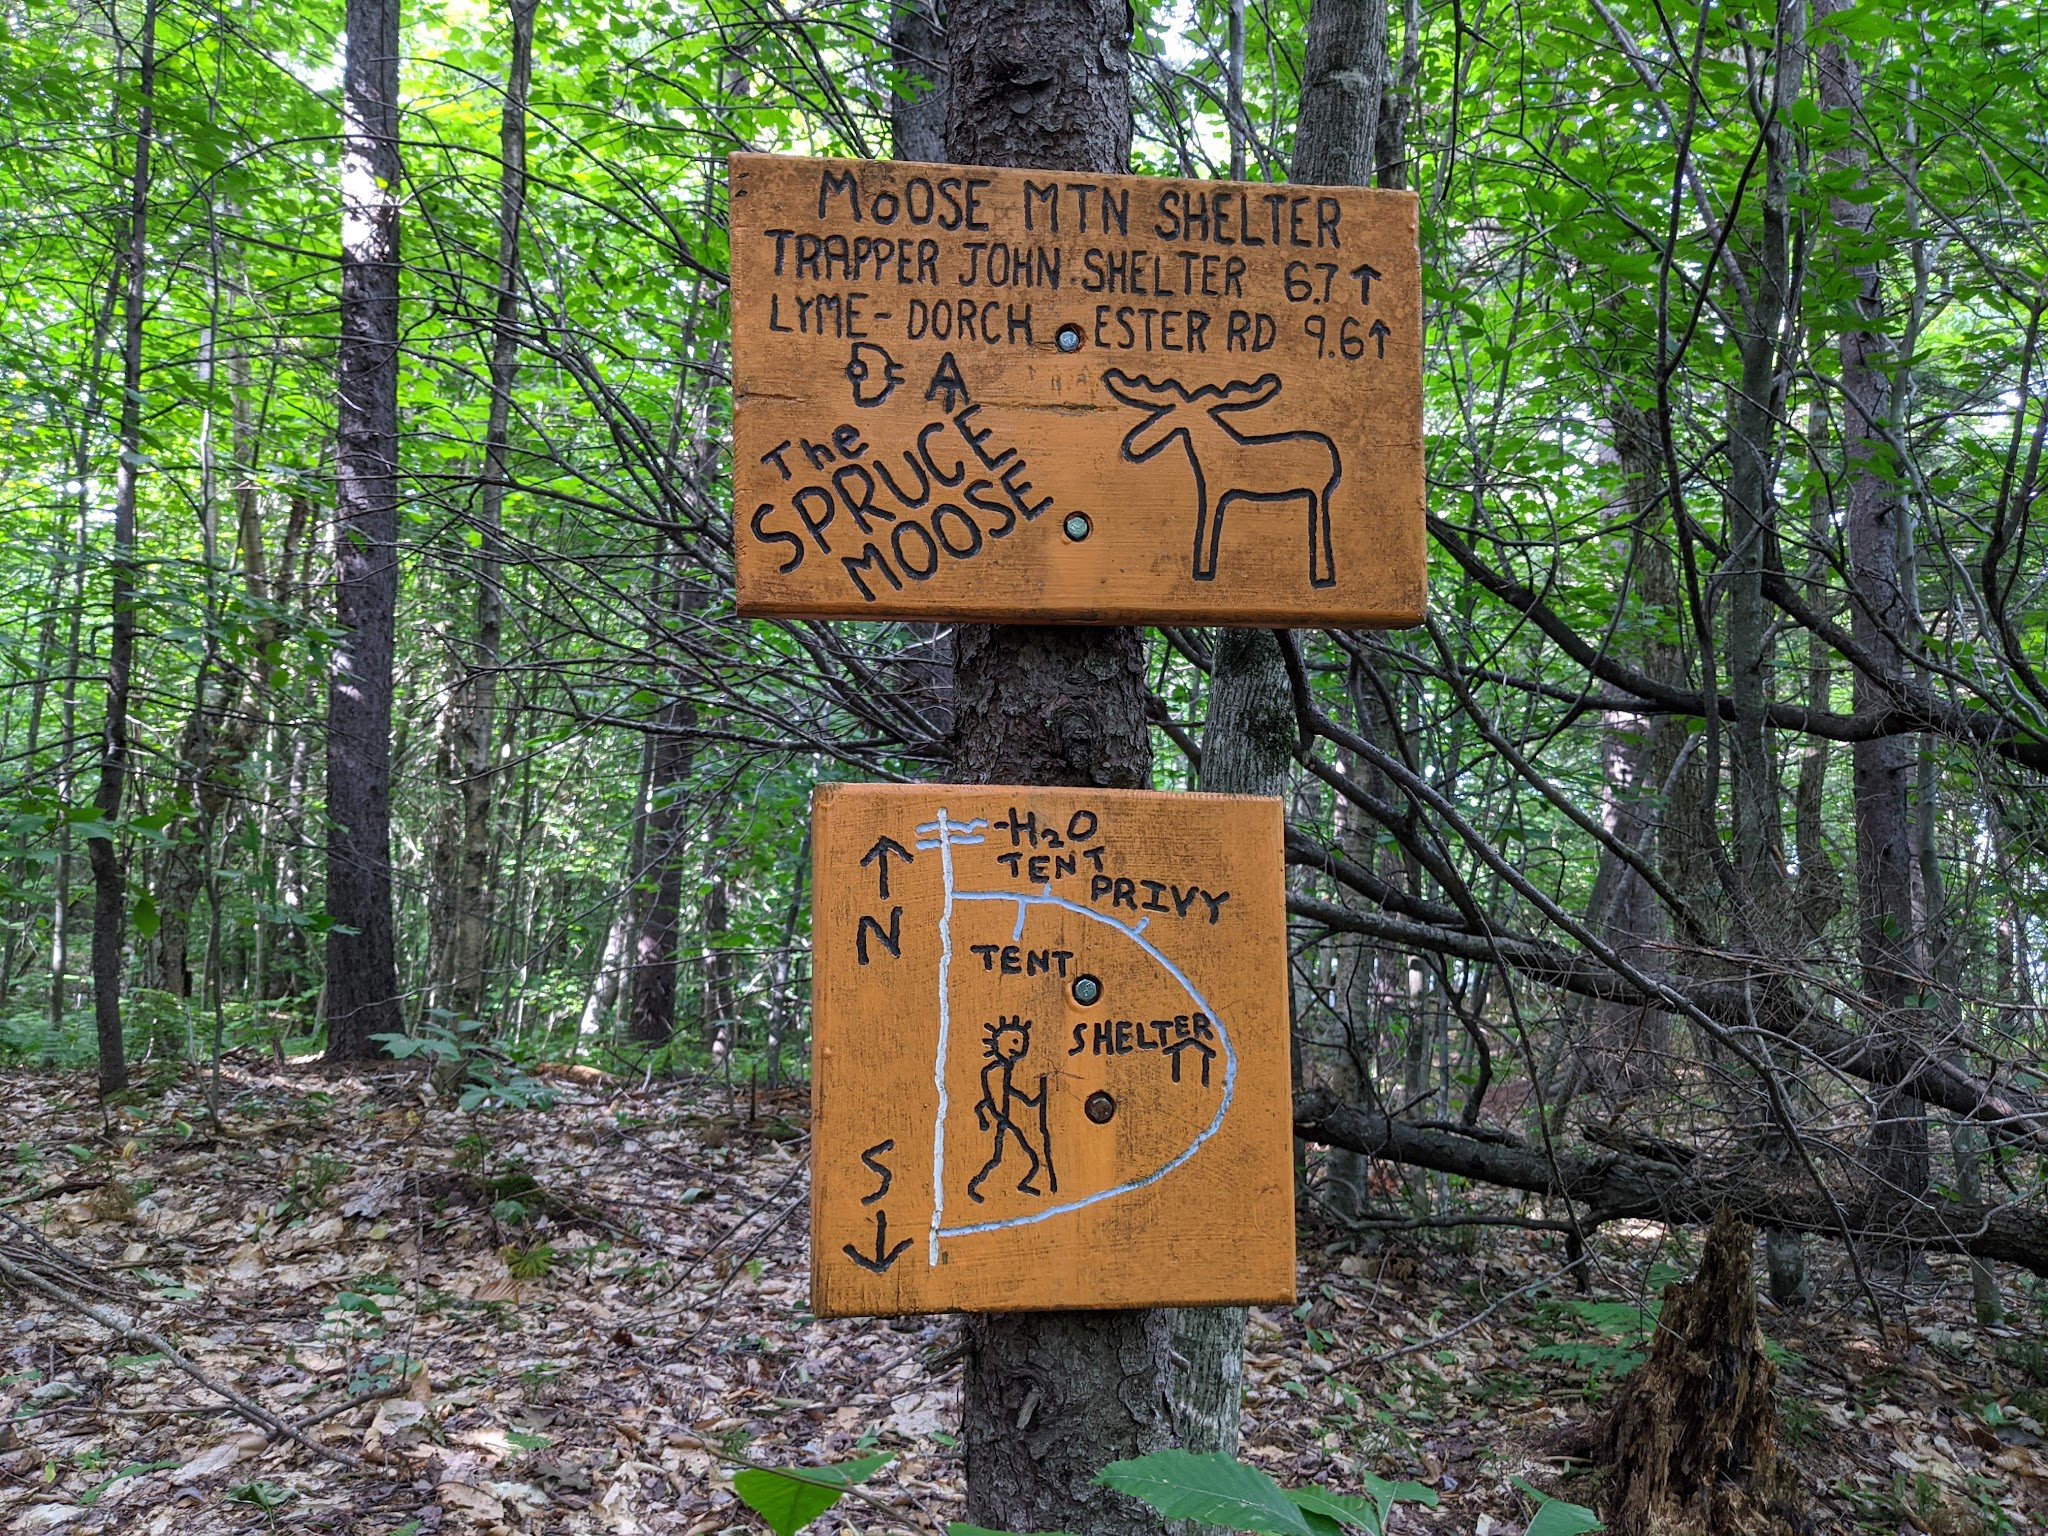 MoOSE MTN SHELTER
TRAPPER JOHN SHELTER 6.7 ↑
LYME-DORCH ESTER RD 9.6 ↑
The
SPRUCE
MOOSE
-H₂O
TENT
PRIVY
N
TENT
SHELTER
S